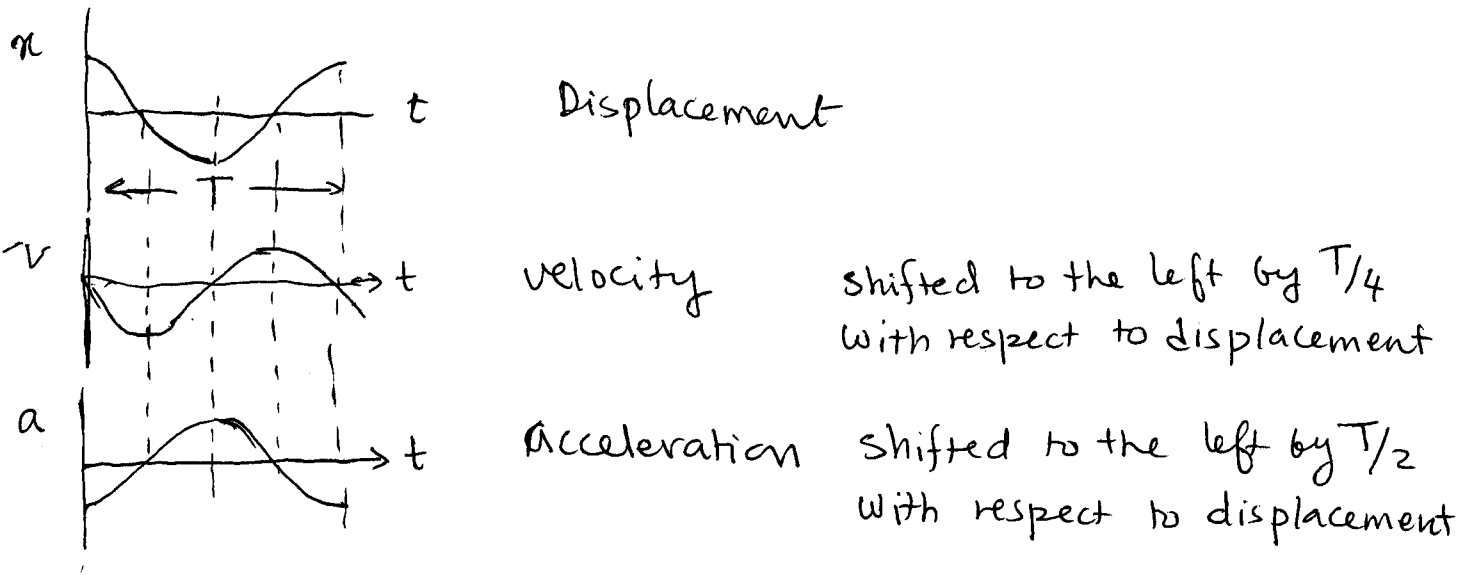 x
t Displacement
T
v
t velocity shifted to the left by T/4
with respect to displacement
a
t Acceleration shifted to the left by T/2
with respect to displacement